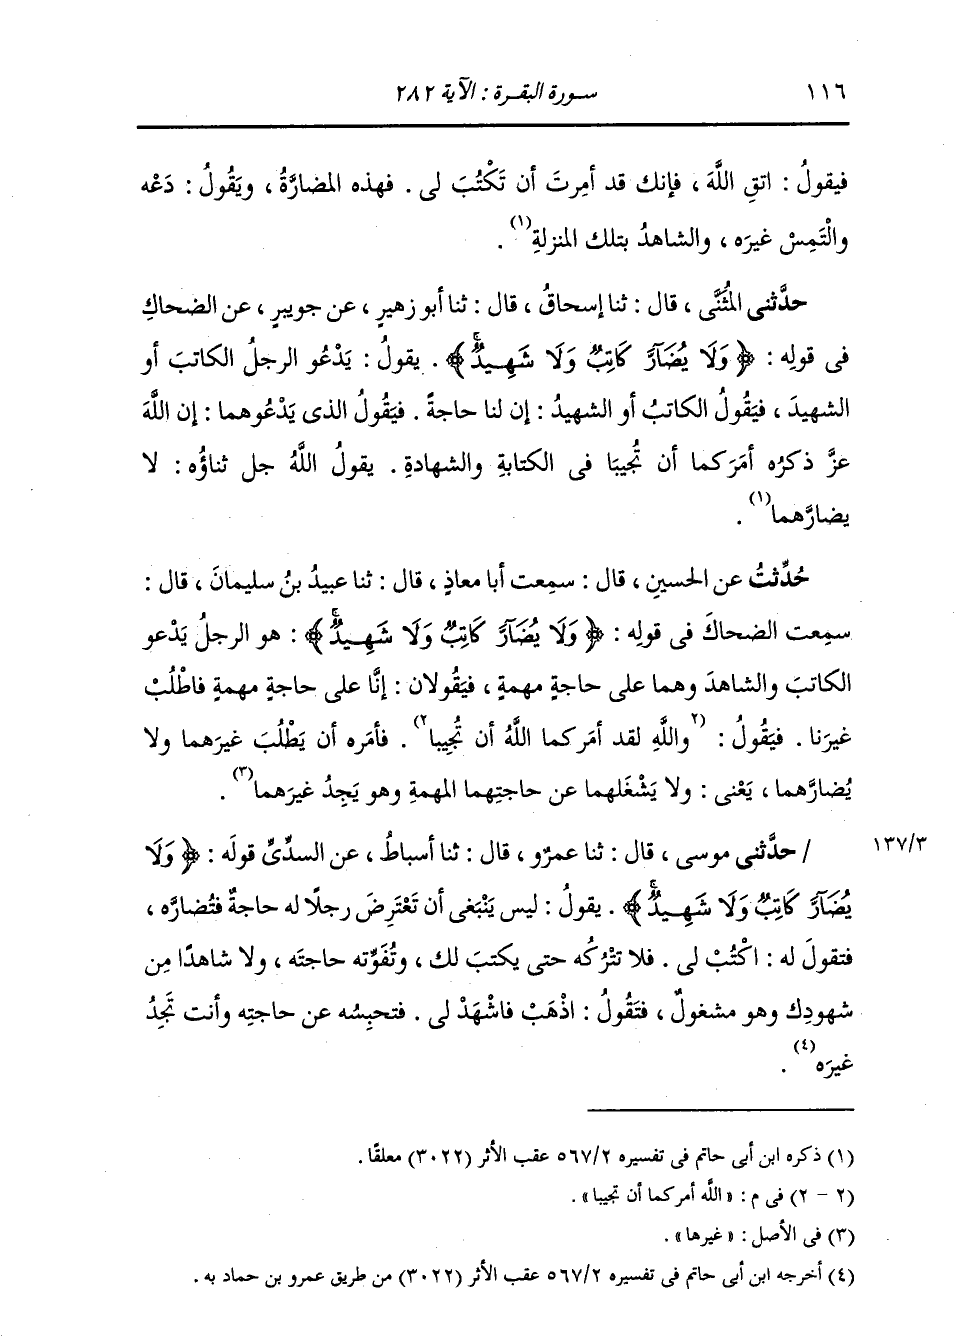 ١١٦ سورة البقرة : الآية ٢٨٢
فيقولُ : اتقِ اللَّهَ ، فإنك قد أمِرتَ أن تَكْتُبَ لى . فهذه المضارَّةُ ، ويَقُولُ : دَعْه
والْتَمِسْ غيرَه ، والشاهدُ بتلك المنزلةِ(١) .
حدَّثنى المُثَنَّى ، قال : ثنا إسحاقُ ، قال : ثنا أبو زهيرٍ ، عن جويبرٍ ، عن الضحاكِ
فى قولِه : ﴿ وَلَا يُضَآرَّ كَاتِبٌ وَلَا شَهِيدٌ ۚ ﴾ . يقولُ : يَدْعُو الرجلُ الكاتبَ أو
الشهيدَ ، فيَقُولُ الكاتبُ أو الشهيدُ : إن لنا حاجةً . فيَقُولُ الذى يَدْعُوهما : إن اللَّهَ
عزَّ ذكرُه أمَرَكما أن تُجِيبَا فى الكتابةِ والشهادةِ . يقولُ اللَّهُ جل ثناؤُه : لا
يضارَّهما(١) .
حُدِّثتُ عن الحسينِ ، قال : سمِعت أبا معاذٍ ، قال : ثنا عبيدُ بنُ سليمانَ ، قال :
سمِعت الضحاكَ فى قولِه : ﴿ وَلَا يُضَآرَّ كَاتِبٌ وَلَا شَهِيدٌ ۚ ﴾ : هو الرجلُ يَدْعو
الكاتبَ والشاهدَ وهما على حاجةٍ مهمةٍ ، فيَقُولان : إنَّا على حاجةٍ مهمةٍ فاطْلُبْ
غيرَنا . فيَقُولُ : (٢واللَّهِ لقد أمَركما اللَّهُ أن تُجِيبا٢) . فأمَره أن يَطْلُبَ غيرَهما ولا
يُضارَّهما ، يَعْنى : ولا يَشْغَلهما عن حاجتِهما المهمةِ وهو يَجِدُ غيرَهما(٣) .
/ حدَّثنى موسى ، قال : ثنا عمرٌو ، قال : ثنا أسباطُ ، عن السدِّىِّ قولَه : ﴿ وَلَا ١٣٧/٣
يُضَآرَّ كَاتِبٌ وَلَا شَهِيدٌ ۚ ﴾ . يقولُ : ليس يَنْبَغى أن تَعْتَرِضَ رجلًا له حاجةٌ فتُضارَّه ،
فتقولَ له : اكْتُبْ لى . فلا تتْرُكُه حتى يكتبَ لك ، وتُفَوِّته حاجتَه ، ولا شاهدًا مِن
شهودِك وهو مشغولٌ ، فتَقُولُ : اذْهَبْ فاشْهَدْ لى . فتحبِسُه عن حاجتِه وأنت تَجِدُ
غيرَه(٤) .
(١) ذكره ابن أبى حاتم فى تفسيره ٥٦٧/٢ عقب الأثر (٣٠٢٢) معلقًا .
(٢ - ٢) فى م : « اللَّه أمركما أن تجيبا » .
(٣) فى الأصل : « غيرها » .
(٤) أخرجه ابن أبى حاتم فى تفسيره ٥٦٧/٢ عقب الأثر (٣٠٢٢) من طريق عمرو بن حماد به .